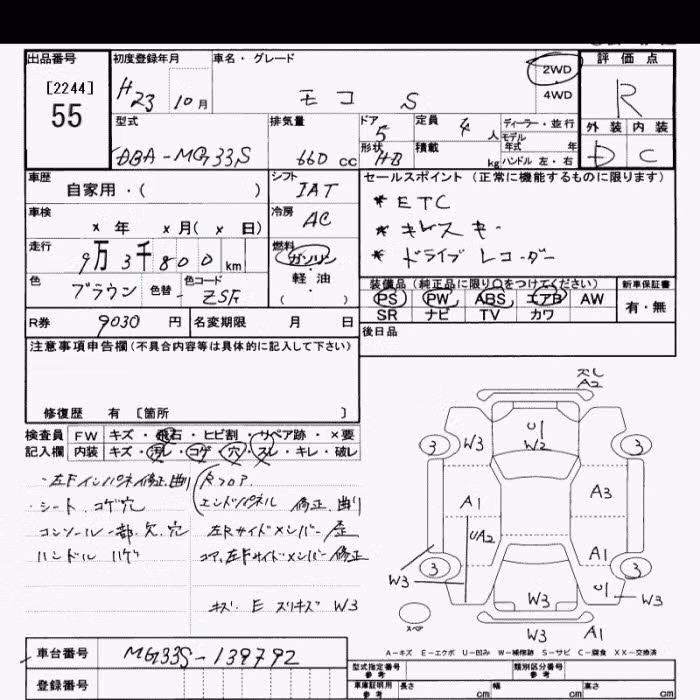 出品番号 初度登録年月 車名・グレード 評価点
[2244] 55
H23 10月 モコ S 2WD 4WD R
型式 排気量 ドア 定員 ディーラー・並行 外装 内装
DBA-MG33S 660 cc 5 4人 モデル年式 年 D C
形状 HB 積載 kg ハンドル 左・右
車歴 自家用・( ) シフト IAT セールスポイント(正常に機能するものに限ります)
車検 x年 x月(x日) 冷房 AC
* ETC
* キーレスキー
* ドライブレコーダー
走行 9万3千800km 燃料 ガソリン・軽油・( )
色 ブラウン 色替 - 色コード ZSF
装備品(純正品に限り○をつけてください) 新車保証書
PS PW ABS エアB AW 有・無
SR ナビ TV カワ
R券 9030円 名変期限 月 日 後日品
注意事項申告欄(不具合内容等は具体的に記入して下さい)
修復歴 有 〔箇所 〕
検査員記入欄 FW キズ・飛石・ヒビ割・リペア跡・×要
内装 キズ・汚レ・コゲ・穴・スレ・キレ・破レ
・左Fインパネ修正、曲り Rフロア
・シート、コゲ穴 エンドパネル 修正、曲り
コンソール一部欠、穴 左Rサイドメンバー 歪
ハンドル ハゲ コア、左Fサイドメンバー 修正
キズ E スリキズ W3
A2
U1
W2
3 W3 3
A1 A3
UA2 A1
3 3
W3 U1 W3
W3
スペア
W3 A1
A-キズ E-エクボ U-凹み W-補修跡 S-サビ C-腐食 XX-交換済
車台番号 MG33S-139792
登録番号
型式指定番号 参考 類別区分番号 参考
車庫証明用 参考 長さ cm 幅 cm 高さ cm